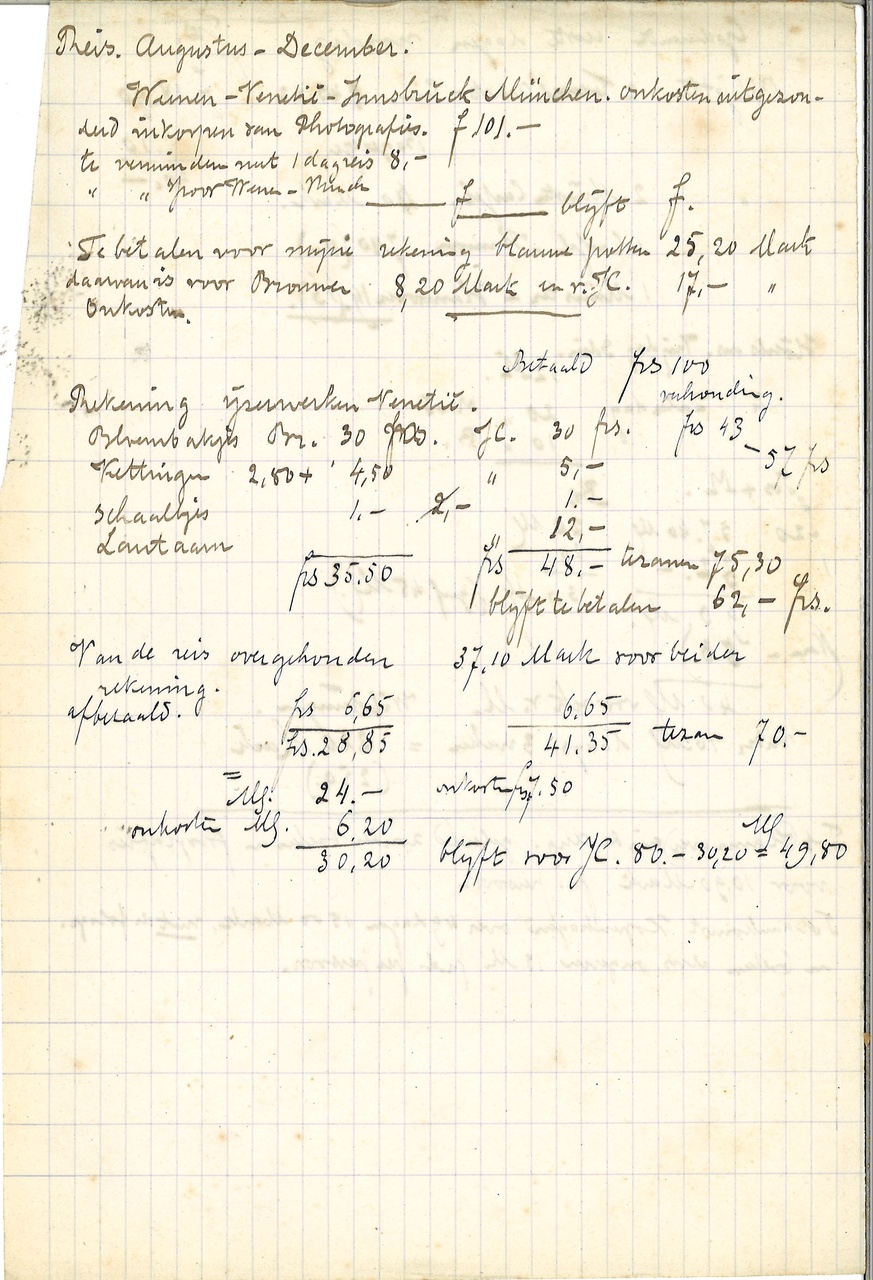 Reis. Augustus - December.
Weenen - Venetië - Innsbrück München. onkosten uitgezon-
derd inkoopen van Photografies. f 101.-
te verminderen met 1 dagreis 8,-
" " spoor Weenen - Münch f blijft f.
Te betalen voor mijne rekening blauwe potten 25,20 Mark
daarvan is voor Brouwer 8,20 Mark en v. JC. 17,- "
Onkosten.
Betaald frs 100
Rekening ijzerwerken Venetië. verhouding.
Bloembakjes Br. 30 frs. JC. 30 frs. frs 43 - 57 frs
Kettingen 2,80 + 4,50 " 5,-
Schaaltjes 1.- 2,- 1.-
Lantaarn " 12,-
frs 35.50 frs 48.- tezamen 75,30
blijft te betalen 62,- frs.
Van de reis overgehouden 37,10 Mark voor beider
rekening.
afbetaald. frs 6,65 6.65
frs. 28,85 41.35 tezam 70.-
= M. 24.- onkosten frs 7.50
onkosten M. 6,20
30,20 blijft voor JC. 80.- 30,20 = M 49,80